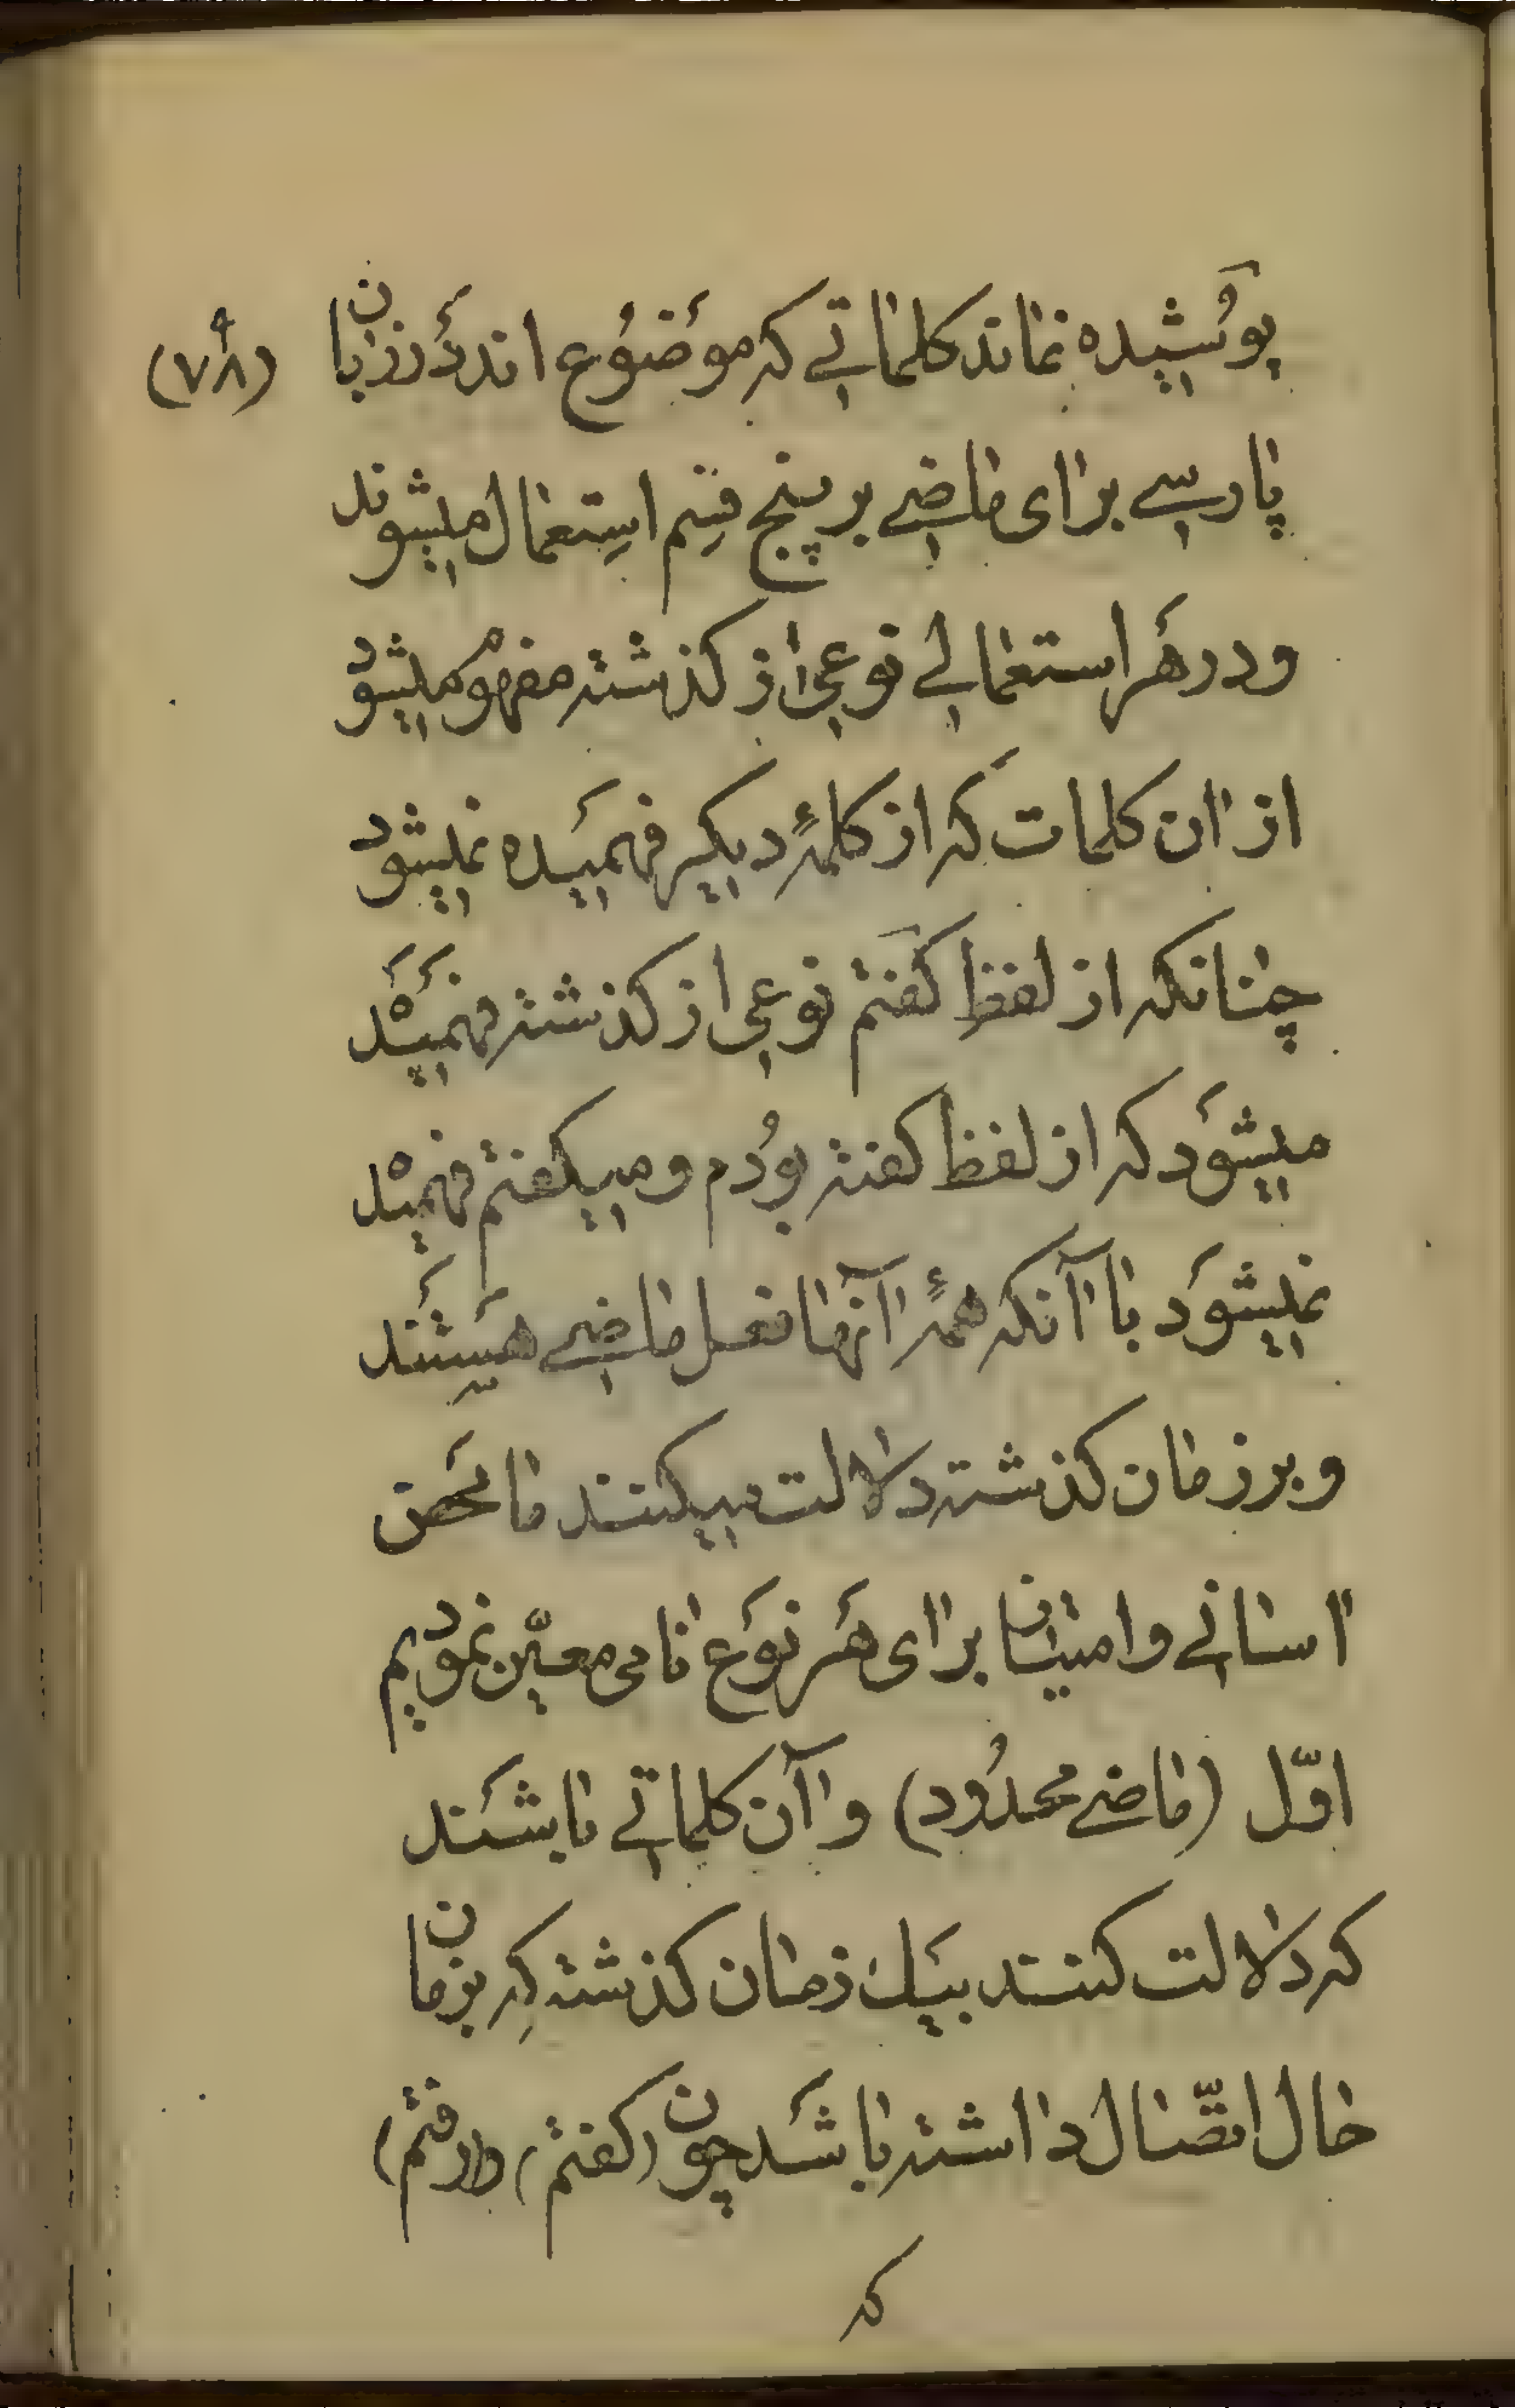 (۷۸)
پوشیده نماند کلماتے که موضوع اند در زبان
پارسے برای ماضے بر پنج قسم استعمال میشوند
و در هر استعمالے نوعی از کذشته مفهوم میشود
از ان کلمات که از کلمهٔ دیکیر فهمیده نمیشود
چنانکه از لفظ کفتم نوعی از کذشته فهمیده
میشود که از لفظ کفته بودم و میکفتم فهمیده
نمیشود با آنکه همهٔ آنها فعل ماضے هستند
و بر زمان کذشته دلالت میکنند ما محض
اسانے و امتیان برای هر نوع نامی معیّن نمودیم
اوّل (ماضے محدُود) و آن کلماتے باشند
که دلالت کنند بیک زمان کذشته کِه بزمان
حال اتّصال داشته باشد چون (کفتم) و (رفتم)
که